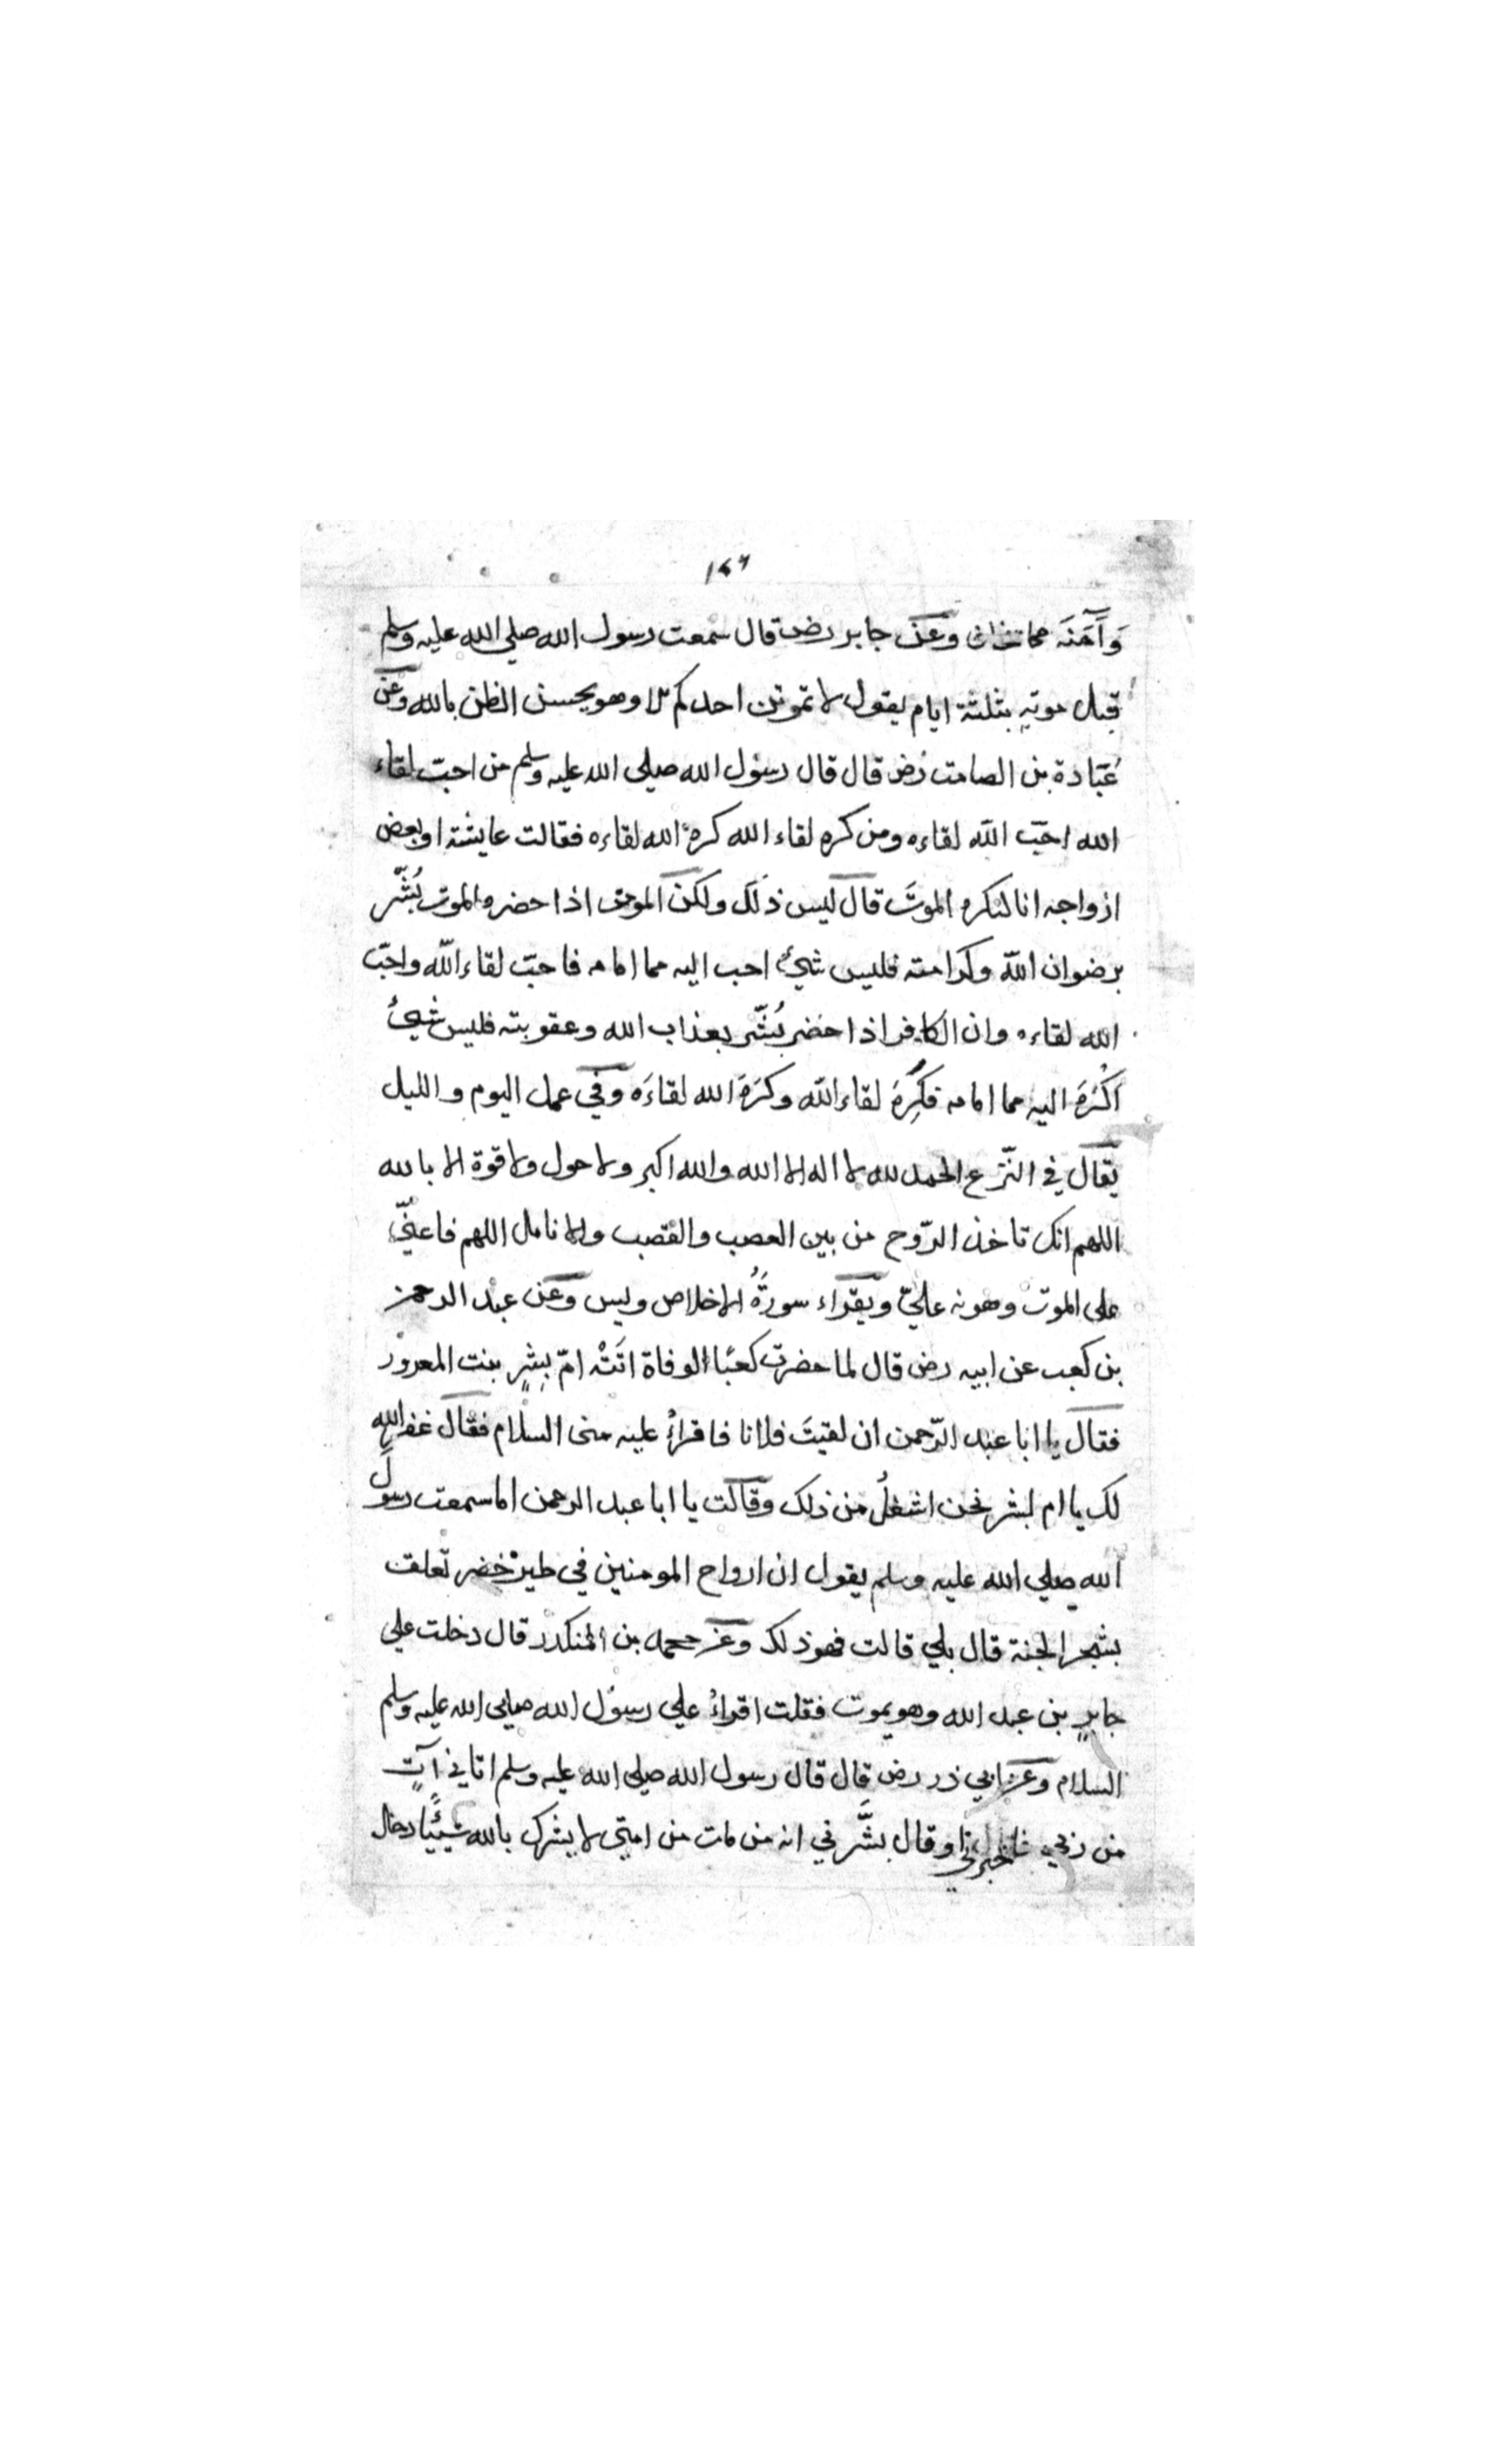 ۱۴۶
وَآمَنَه مما يخاف وعن جابر رض قال سمعت رسول الله صلي الله عليه وسلم
قبل موته بثلثة ايام يقول لا تموتن احدكم الا وهو يحسن الظن بالله وعن
عُبَادة بن الصامت رض قال قال رسول الله صلى الله عليه وسلم من احبّ لقاء
الله احبّ الله لقاءه ومن كره لقاء الله كره الله لقاءه فقالت عايشة او بعض
ازواجه انا لنكره الموتَ قال ليس ذلك ولكن المومن اذا حضره الموت بُشّر
برضوان الله وكرامته فليس شيءٌ احب اليه مما امامه فاحبّ لقاء الله واحبّ
الله لقاءه وان الكافر اذا حضر بُشّر بعذاب الله وعقوبته فليس شيءٌ
اكْرَهَ اليه مما امامه فكَرِهَ لقاء الله وكَرِهَ الله لقاءَه وفي عمل اليوم والليل
يقال في النّزع الحمد لله لا اله الا الله والله اكبر ولا حول ولا قوة الا بالله
اللهم انك تاخذ الرّوح من بين العصب والقصب والانامل اللهم فاعنّي
على الموت وهونه عليّ ويقراء سورةُ الاخلاص ويس وعن عبد الرحمن
بن كعب عن ابيه رض قال لما حضرت كعبًا الوفاة اتَتْه امّ بِشرٍ بنت المعرور
فقال يا ابا عبد الرّحمن ان لقيتَ فلانا فاقرأْ عليه منى السلام فقال غفر الله
لك يا ام بشر نحن اشغلُ من ذلك وقالت يا ابا عبد الرحمن اما سمعت رسول
الله صلي الله عليه وسلم يقول ان ارواح المومنين في طيرٍ خضر تعلق
بشجر الجنة قال بلي قالت فهو ذلك وعن محمد بن المنكدر قال دخلت علي
جابرٍ بن عبد الله وهو يموت فقلت اقراءْ علي رسول الله صلى الله عليه وسلم
السلام وعن ابي ذر رض قال قال رسول الله صلى الله عليه وسلم اتاني آتٍ
من ربي فاخبرني او قال بشَّرني انه من مات من امتي لا يشرك بالله شيئًا دخل